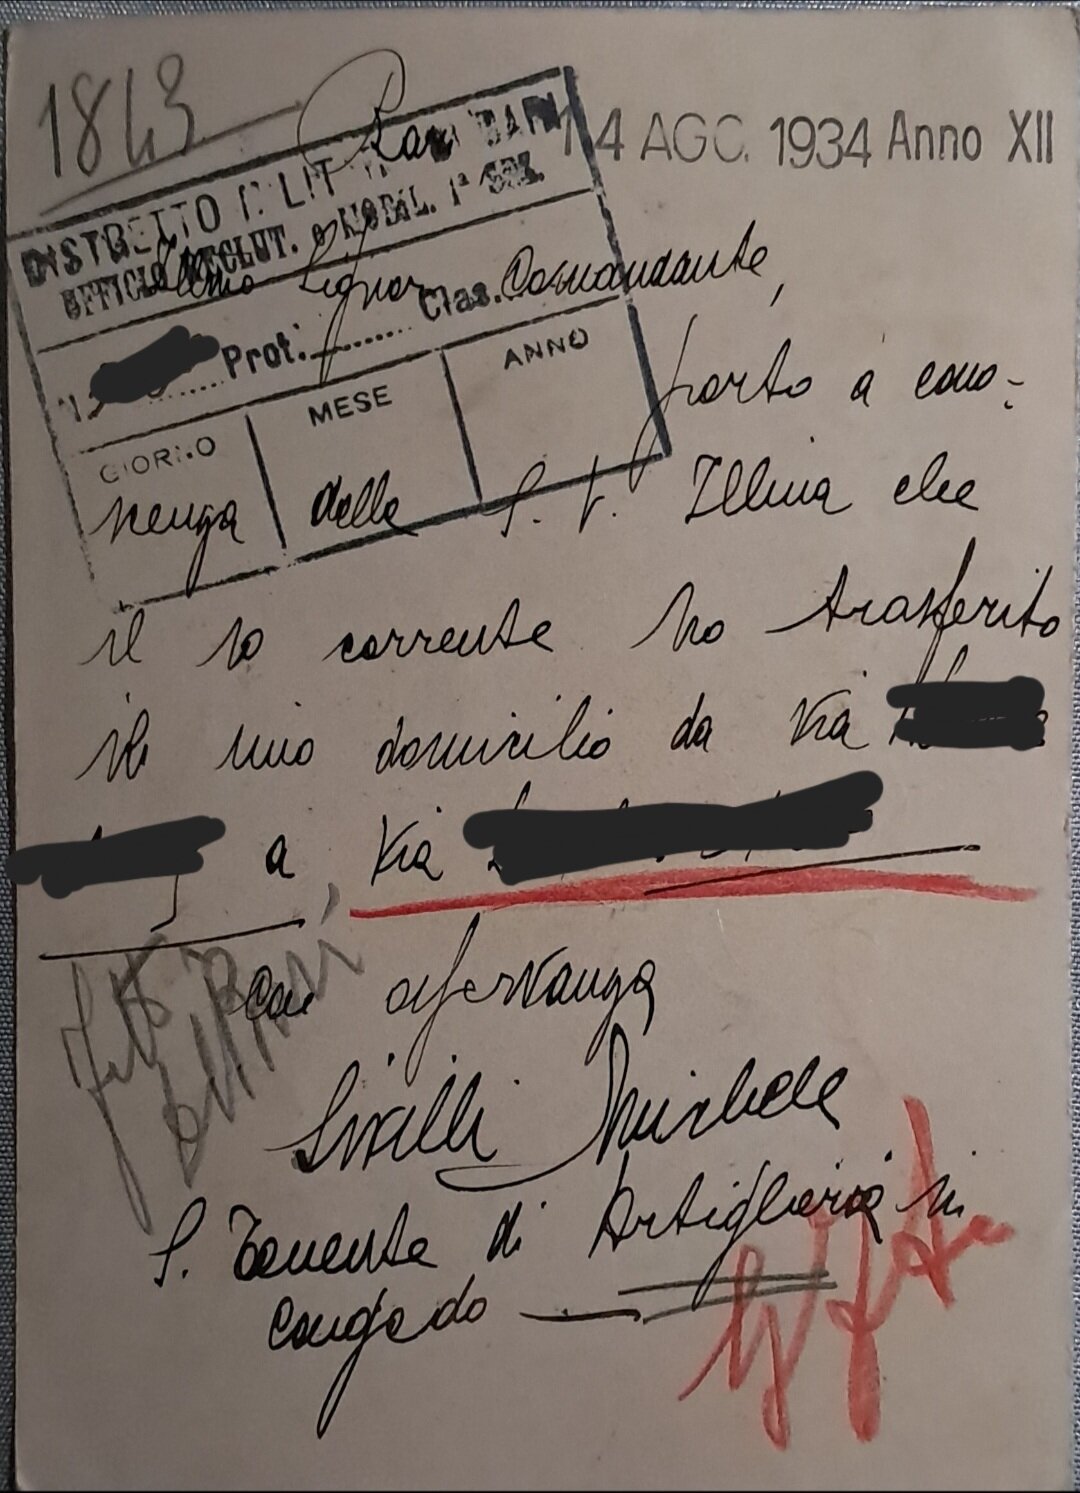 1843
Bari 14 AGO. 1934 Anno XII
DISTRETTO MILIT BARI
UFFICIO RECLUT. e MOBIL. 1ª SEZ.
Illmo Signor Comandante,
N. Prot. Clas.
GIORNO MESE ANNO
porto a cono-
scenza della S. V. Illma che
il 10 corrente ho trasferito
il mio domicilio da Via
a Via
con osservanza
Michele
S. Tenente di Artiglieria in
congedo